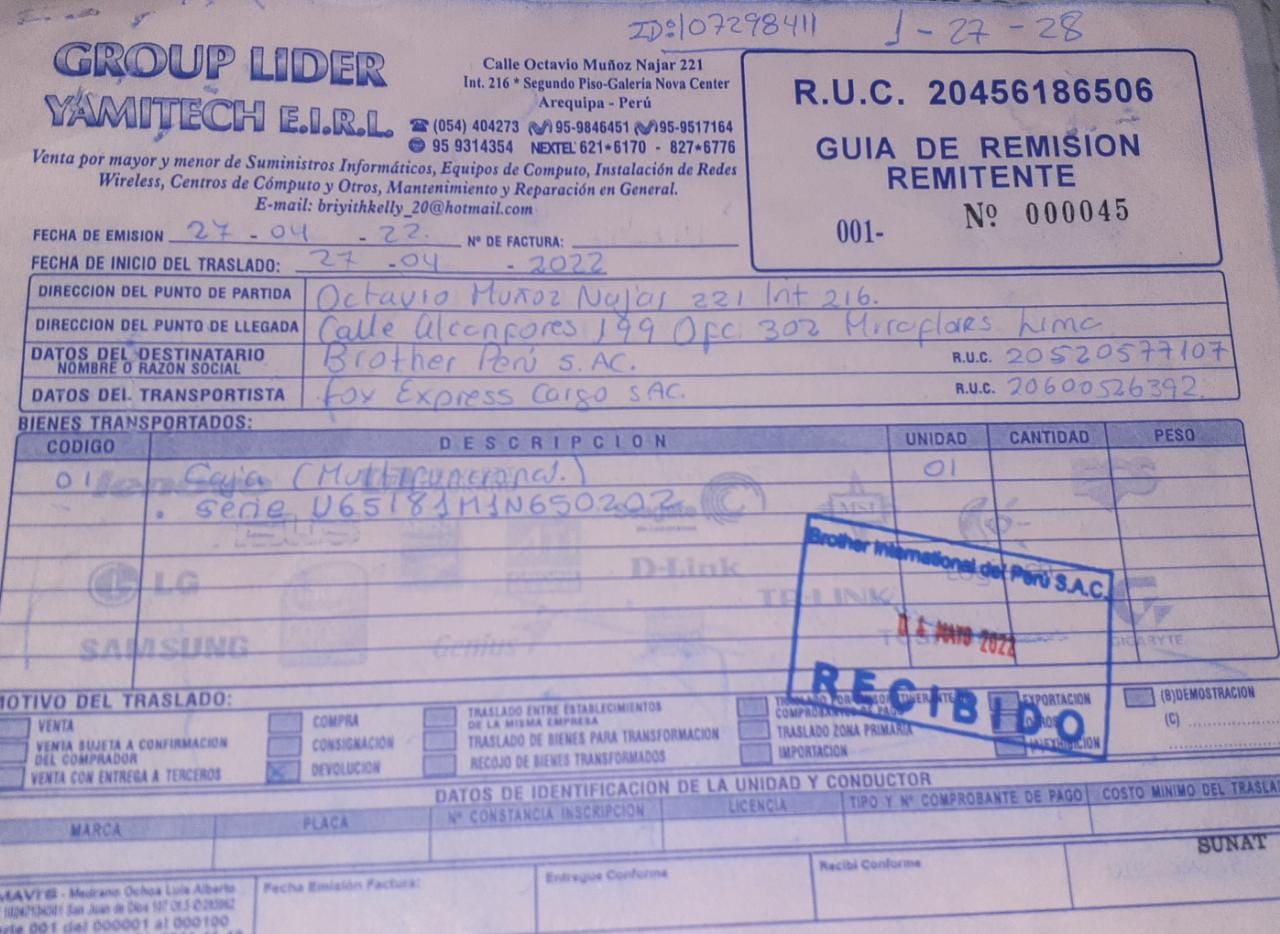 ID:107298411 1-27-28
GROUP LIDER
YAMITECH E.I.R.L.
Calle Octavio Muñoz Najar 221
Int. 216 * Segundo Piso-Galería Nova Center
Arequipa - Perú
(054) 404273 95-9846451 95-9517164
95 9314354 NEXTEL 621*6170 - 827*6776
Venta por mayor y menor de Suministros Informáticos, Equipos de Computo, Instalación de Redes
Wireless, Centros de Cómputo y Otros, Mantenimiento y Reparación en General.
E-mail: briyithkelly_20@hotmail.com
R.U.C. 20456186506
GUIA DE REMISION
REMITENTE
001- Nº 000045
FECHA DE EMISION 27-04-22. Nº DE FACTURA:
FECHA DE INICIO DEL TRASLADO: 27-04-2022
DIRECCION DEL PUNTO DE PARTIDA Octavio Muñoz Najar 221 Int 216.
DIRECCION DEL PUNTO DE LLEGADA Calle Alcanfores 199 Ofc. 302 Miraflores Lima
DATOS DEL DESTINATARIO
NOMBRE O RAZON SOCIAL Brother Perú S.AC. R.U.C. 20520577107
DATOS DEL TRANSPORTISTA Fox Express Cargo SAC. R.U.C. 20600526392
BIENES TRANSPORTADOS:
CODIGO DESCRIPCION UNIDAD CANTIDAD PESO
01 Caja (Multifuncional.) 01
. Serie U65181M1N650202
LG
D-Link
TP-LINK
SAMSUNG
Genius
GIGABYTE
Brother International del Perú S.A.C.
MAYO 2022
RECIBIDO
MOTIVO DEL TRASLADO:
VENTA
VENTA SUJETA A CONFIRMACION
DEL COMPRADOR
VENTA CON ENTREGA A TERCEROS
COMPRA
CONSIGNACION
DEVOLUCION
TRASLADO ENTRE ESTABLECIMIENTOS
DE LA MISMA EMPRESA
TRASLADO DE BIENES PARA TRANSFORMACION
RECOJO DE BIENES TRANSFORMADOS
TRASLADO POR EMISOR ITINERANTE
COMPROBANTES DE PAGO
TRASLADO ZONA PRIMARIA
IMPORTACION
EXPORTACION
OTROS
(A)EXHIBICION
(B)DEMOSTRACION
(C)
DATOS DE IDENTIFICACION DE LA UNIDAD Y CONDUCTOR
MARCA PLACA Nº CONSTANCIA INSCRIPCION LICENCIA TIPO Y Nº COMPROBANTE DE PAGO COSTO MINIMO DEL TRASLA
SUNAT
Medrano Ochoa Luis Alberto
San Juan de Dios 107
001 del 000001 al 000100
Fecha Emisión Factura:
Entregue Conforme
Recibi Conforme